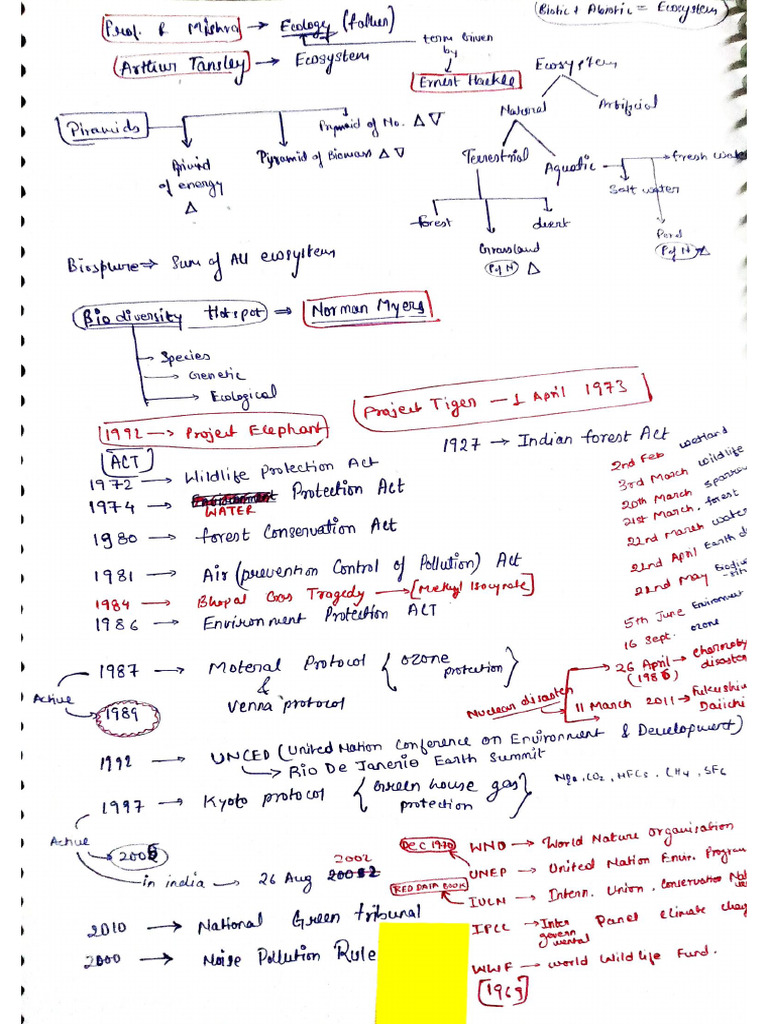 Prof. R Mishra → Ecology (father)
Biotic + Abiotic = Ecosystem
Arthur Tansley → Ecosystem
term Given by
Ernest Haekle
Ecosystem
Natural
Artificial
Piramids
Pyramid of No. △ ▽
Pyramid of Biomass △ ▽
of energy
△
Terrestrial
Aquatic
fresh water
Salt water
forest
desert
Grassland
P of N △
P of N
Biosphere ⇒ Sum of All ecosystem
Biodiversity Hotspot ⇒ Norman Myers
Species
Genetic
Ecological
Project Tiger — 1 April 1973
1992 → Project Elephant
1927 → Indian forest Act
ACT
1972 → Wildlife Protection Act
1974 → WATER Protection Act
1980 → forest Conservation Act
1981 → Air (prevention Control of Pollution) Act
1984 → Bhopal Gas Tragedy → [Methyl Isocynate]
1986 → Environment Protection ACT
2nd Feb wetland
3rd March wildlife
20th March sparrow
21st March. forest
22nd March water
22nd April Earth
22nd May
5th June Environment
16 Sept. ozone
1987 → Moteral Protocol { ozone protection }
&
Venna protocol
Active
1989
Nuclear disaster
26 April → disaster
(1986)
11 March 2011 → Daiichi
1992 → UNCED (United Nation Conference on Environment & Development)
→ Rio De Janerio Earth Summit
1997 → Kyoto protocol { Green house gas protection }
CO2, HFCs, CH4, SF6
Active
2005
in india → 26 Aug 2002
2010 → National Green tribunal
2000 → Noise Pollution Rule
WNO → World Nature Organisation
Dec 1970
UNEP → United Nation Envir. Program
RED DATA BOOK
IUCN → Intern. Union. Conservation
IPCC → Inter governmental Panel climate
WWF → World Wildlife Fund.
[1969]